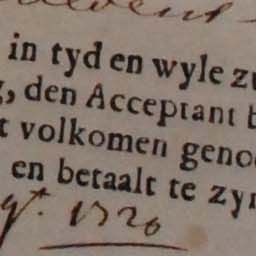 in tyd en wyle z
, den Acceptant
volkomen geno
en betaalt te zy
1720